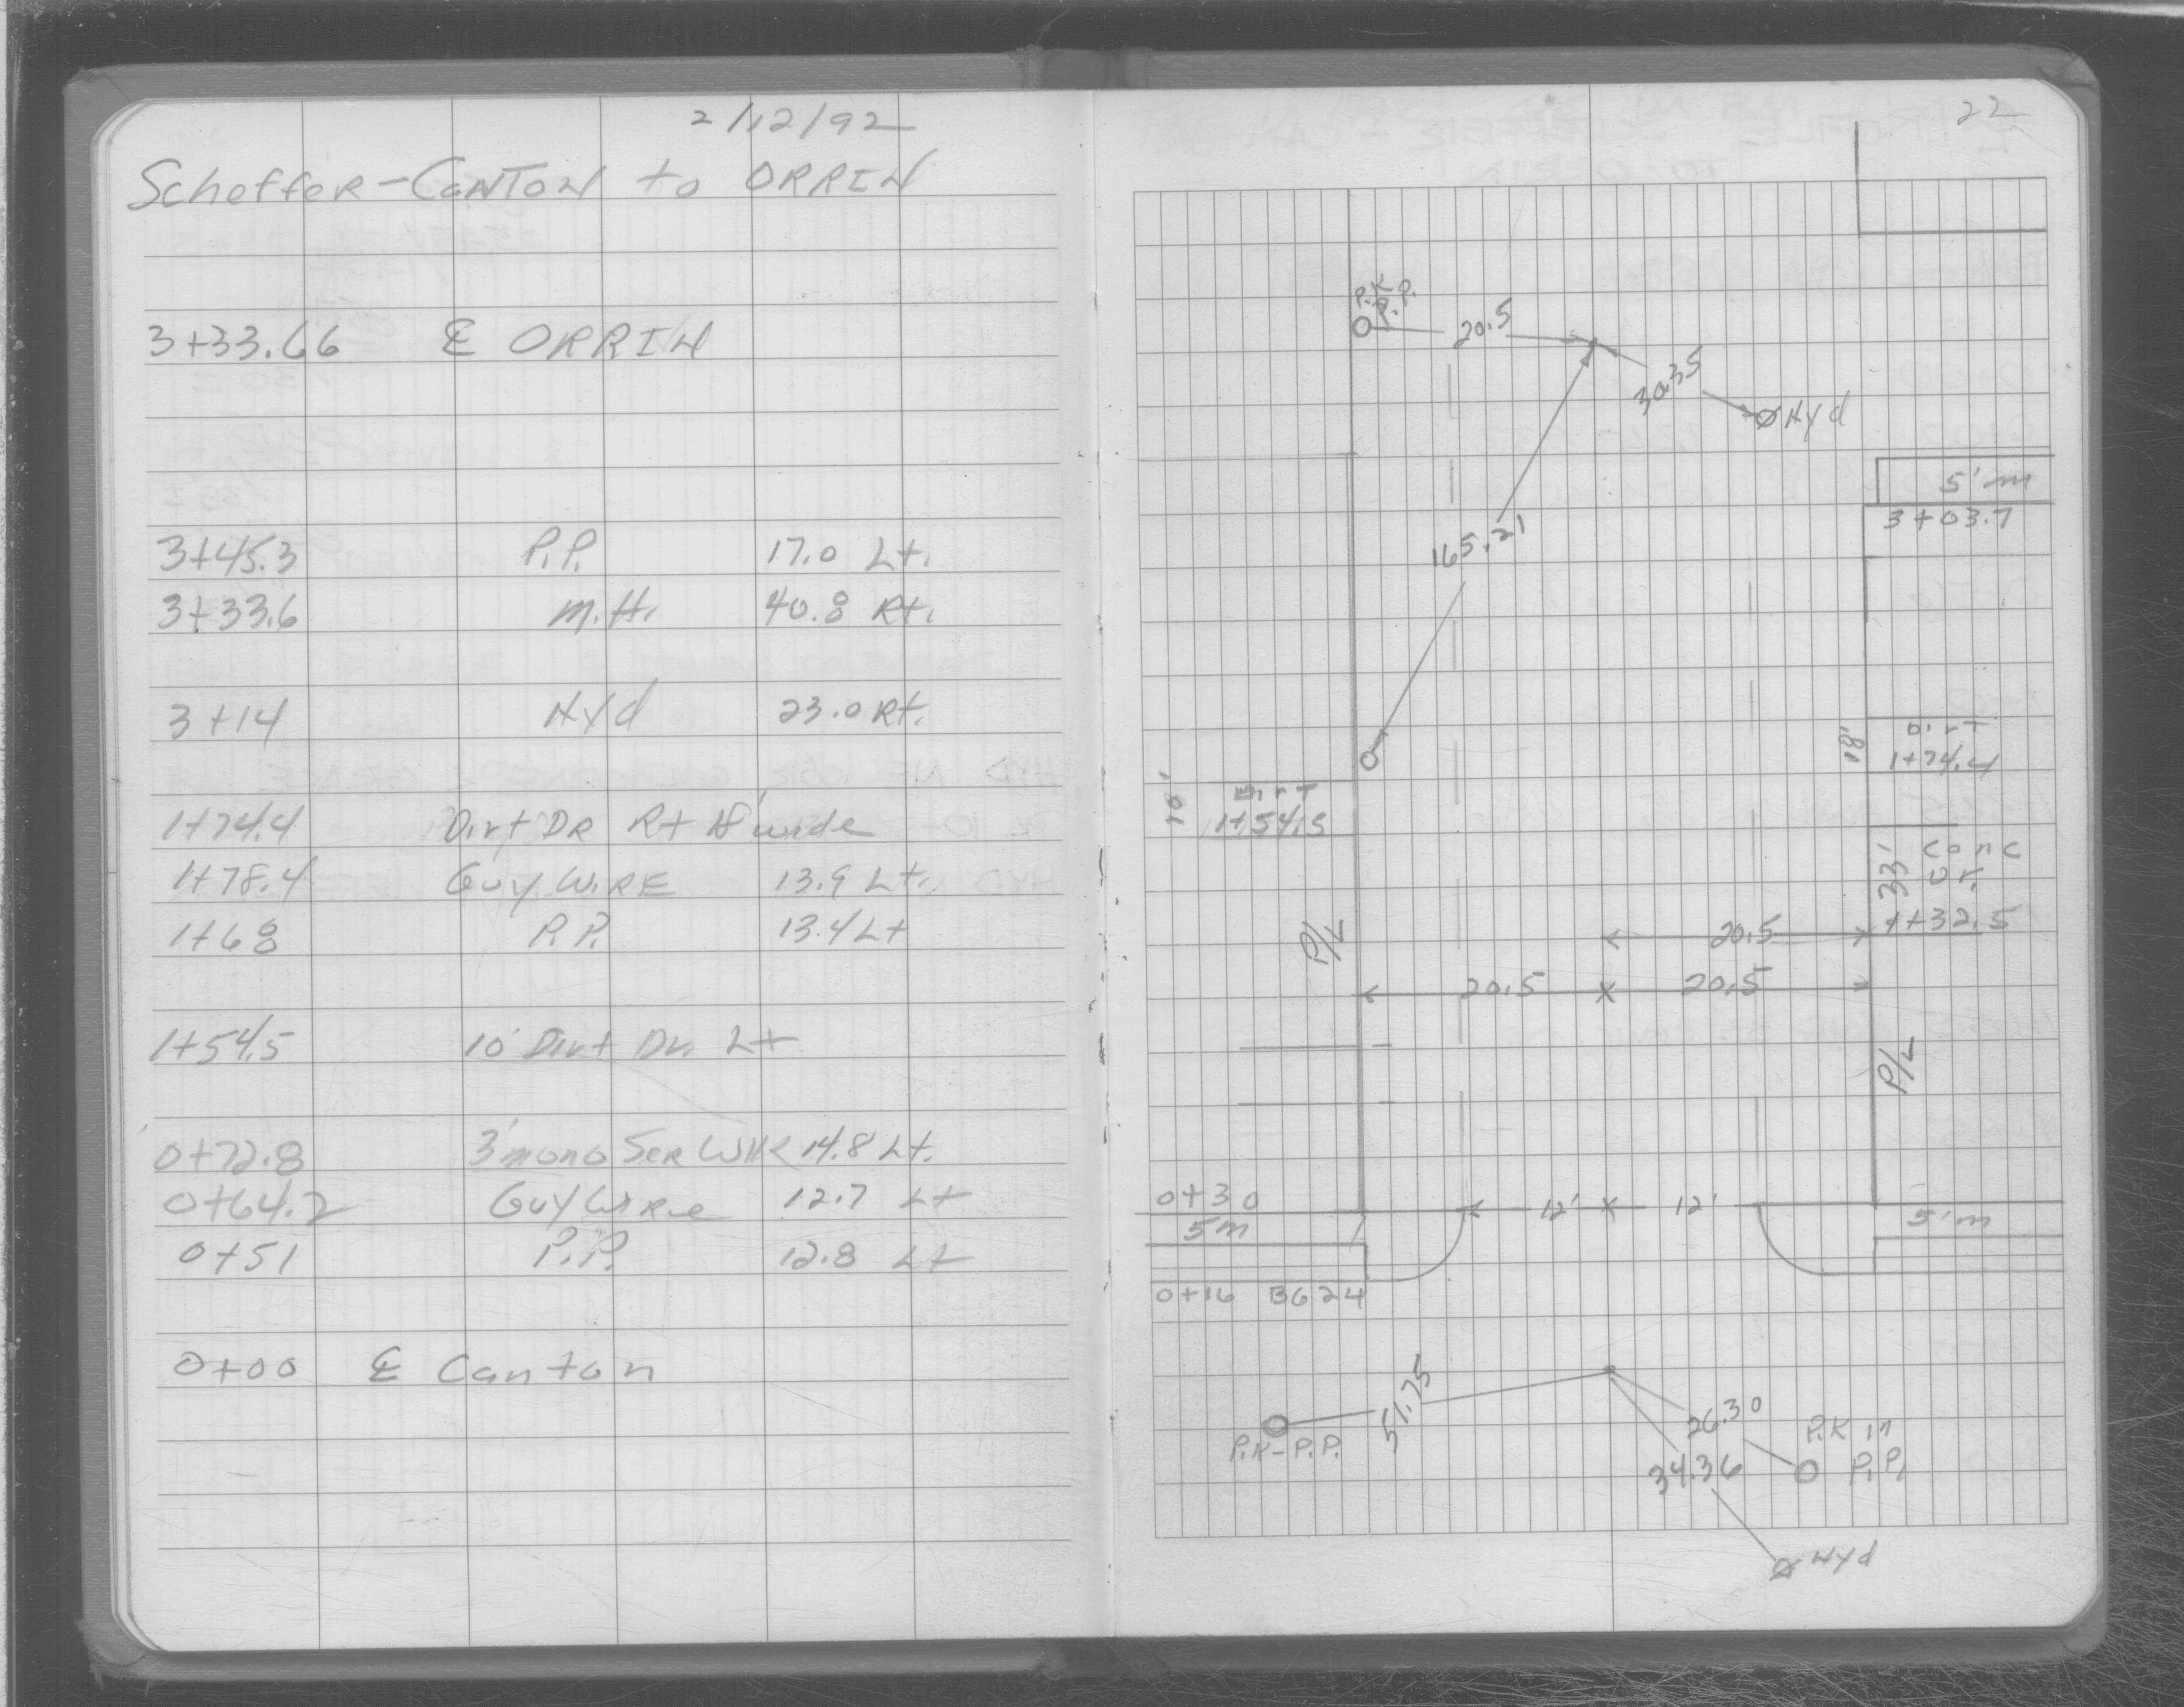 2/12/92
Scheffer-CANTON to ORRIN
3+33.66 ℄ ORRIN
3+45.3 P.P. 17.0 Lt.
3+33.6 M.H. 40.8 Rt.
3+14 Hyd 23.0 Rt.
1+74.4 Dirt DR Rt 18' wide
1+78.4 Guy WIRE 13.9 Lt.
1+68 P.P. 13.4 Lt
1+54.5 10' Dirt Dr. Lt
0+72.8 3' mono Ser Wlk 14.8 Lt.
0+64.2 Guy Wire 12.7 Lt
0+51 P.P. 12.8 Lt
0+00 ℄ Canton
22
P.K.
P.P.
20.5
30.35
Hyd
5' m
3+03.7
165.21
18'
Dirt
1+74.4
10'
Dirt
1+54.5
33'
Conc
Dr.
1+32.5
20.5
P/L
20.5 20.5
P/L
0+30
12' 12'
5m
5'm
0+16 B624
51.75
26.30
P.K in
P.P.
P.K-P.P.
34.36
Hyd